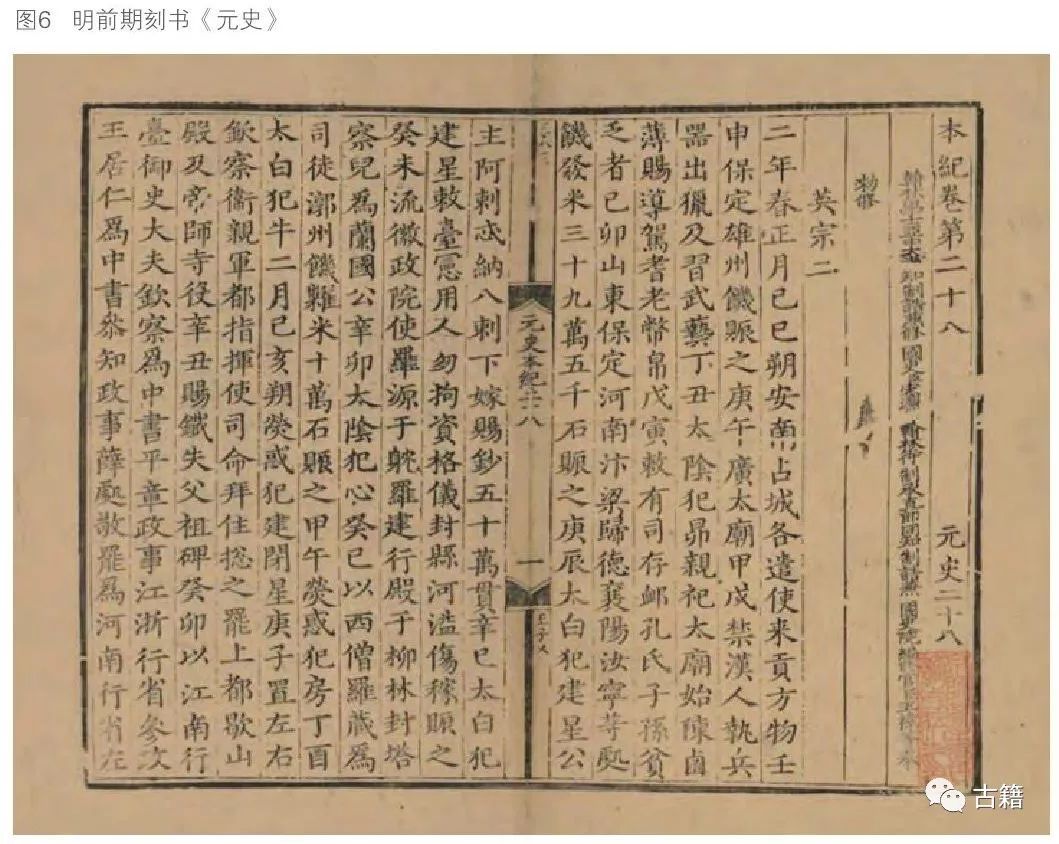 图6 明前期刻书《元史》
本紀卷第二十八 元史二十八
勑修
英宗二
二年春正月己巳朔安南占城各遣使來貢方物壬
申保定雄州饑賑之庚午廣太廟甲戌禁漢人執兵
器出獵及習武藝丁丑太陰犯昴親祀太廟始陳鹵
薄賜導駕耆老幣帛戊寅敕有司存卹孔氏子孫貧
乏者己卯山東保定河南汴梁歸德襄陽汝寧等處
饑發米三十九萬五千石賑之庚辰太白犯建星公
元史本紀二十八
一
主阿剌忒納八剌下嫁賜鈔五十萬貫辛巳太白犯
建星敕臺憲用人勿拘資格儀封縣河溢傷稼賑之
癸未流徽政院使羅源于躭羅建行殿于柳林封塔
察兒爲蘭國公辛卯太陰犯心癸巳以西僧羅藏爲
司徒漷州饑糶米十萬石賑之甲午熒惑犯房丁酉
太白犯牛二月己亥朔熒惑犯建閉星庚子置左右
欽察衛親軍都指揮使司命拜住総之罷上都歇山
殿及帝師寺役辛丑賜鐵失父祖碑癸卯以江南行
臺御史大夫欽察爲中書平章政事江浙行省參政
王居仁爲中書叅知政事薛處敬罷爲河南行省左
古籍